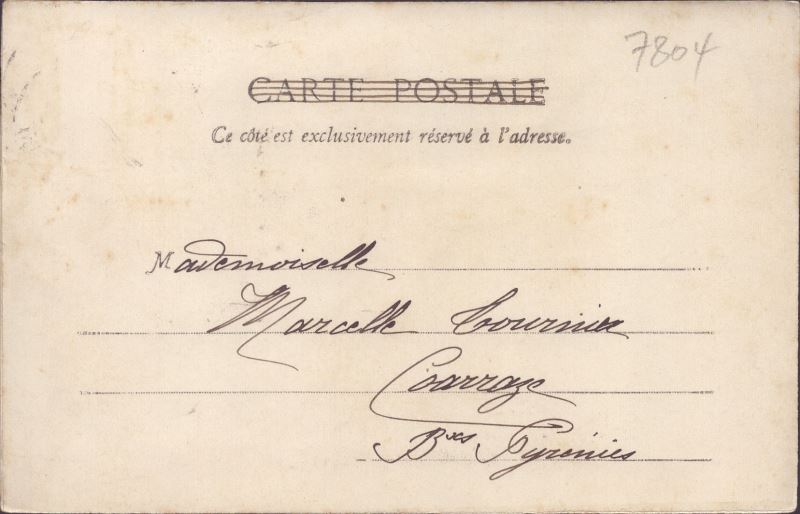 7804
CARTE POSTALE
Ce côté est exclusivement réservé à l'adresse.
Mademoiselle
Marcelle Tournier
Coarraze
Bxes Pyrénées